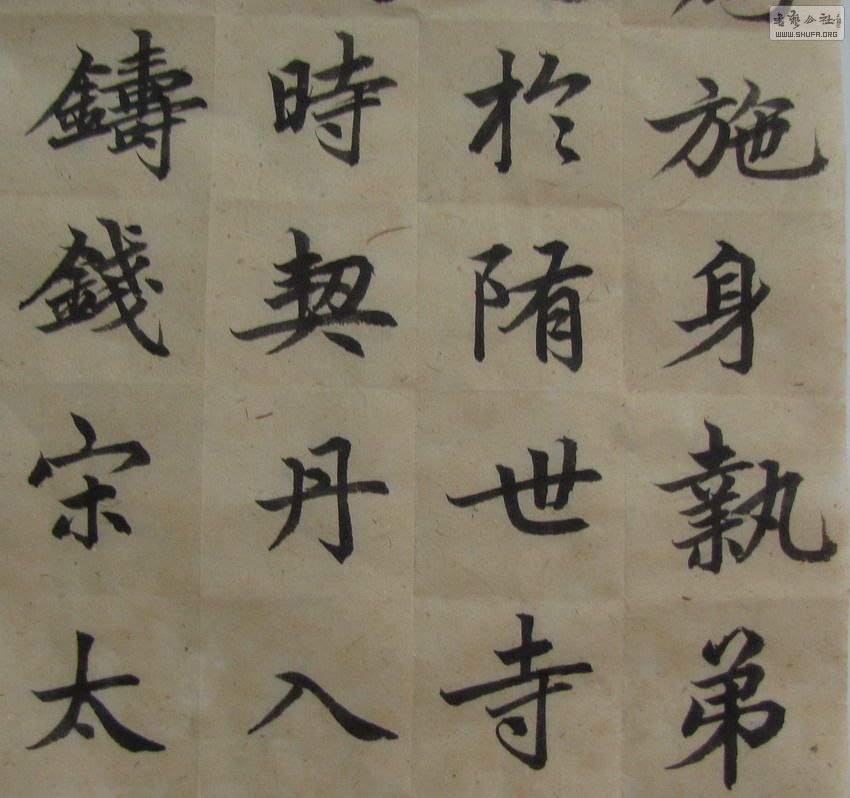 施身執弟
於陏世寺
時契丹入
鑄錢宋太
书艺公社
WWW.SHUFA.ORG